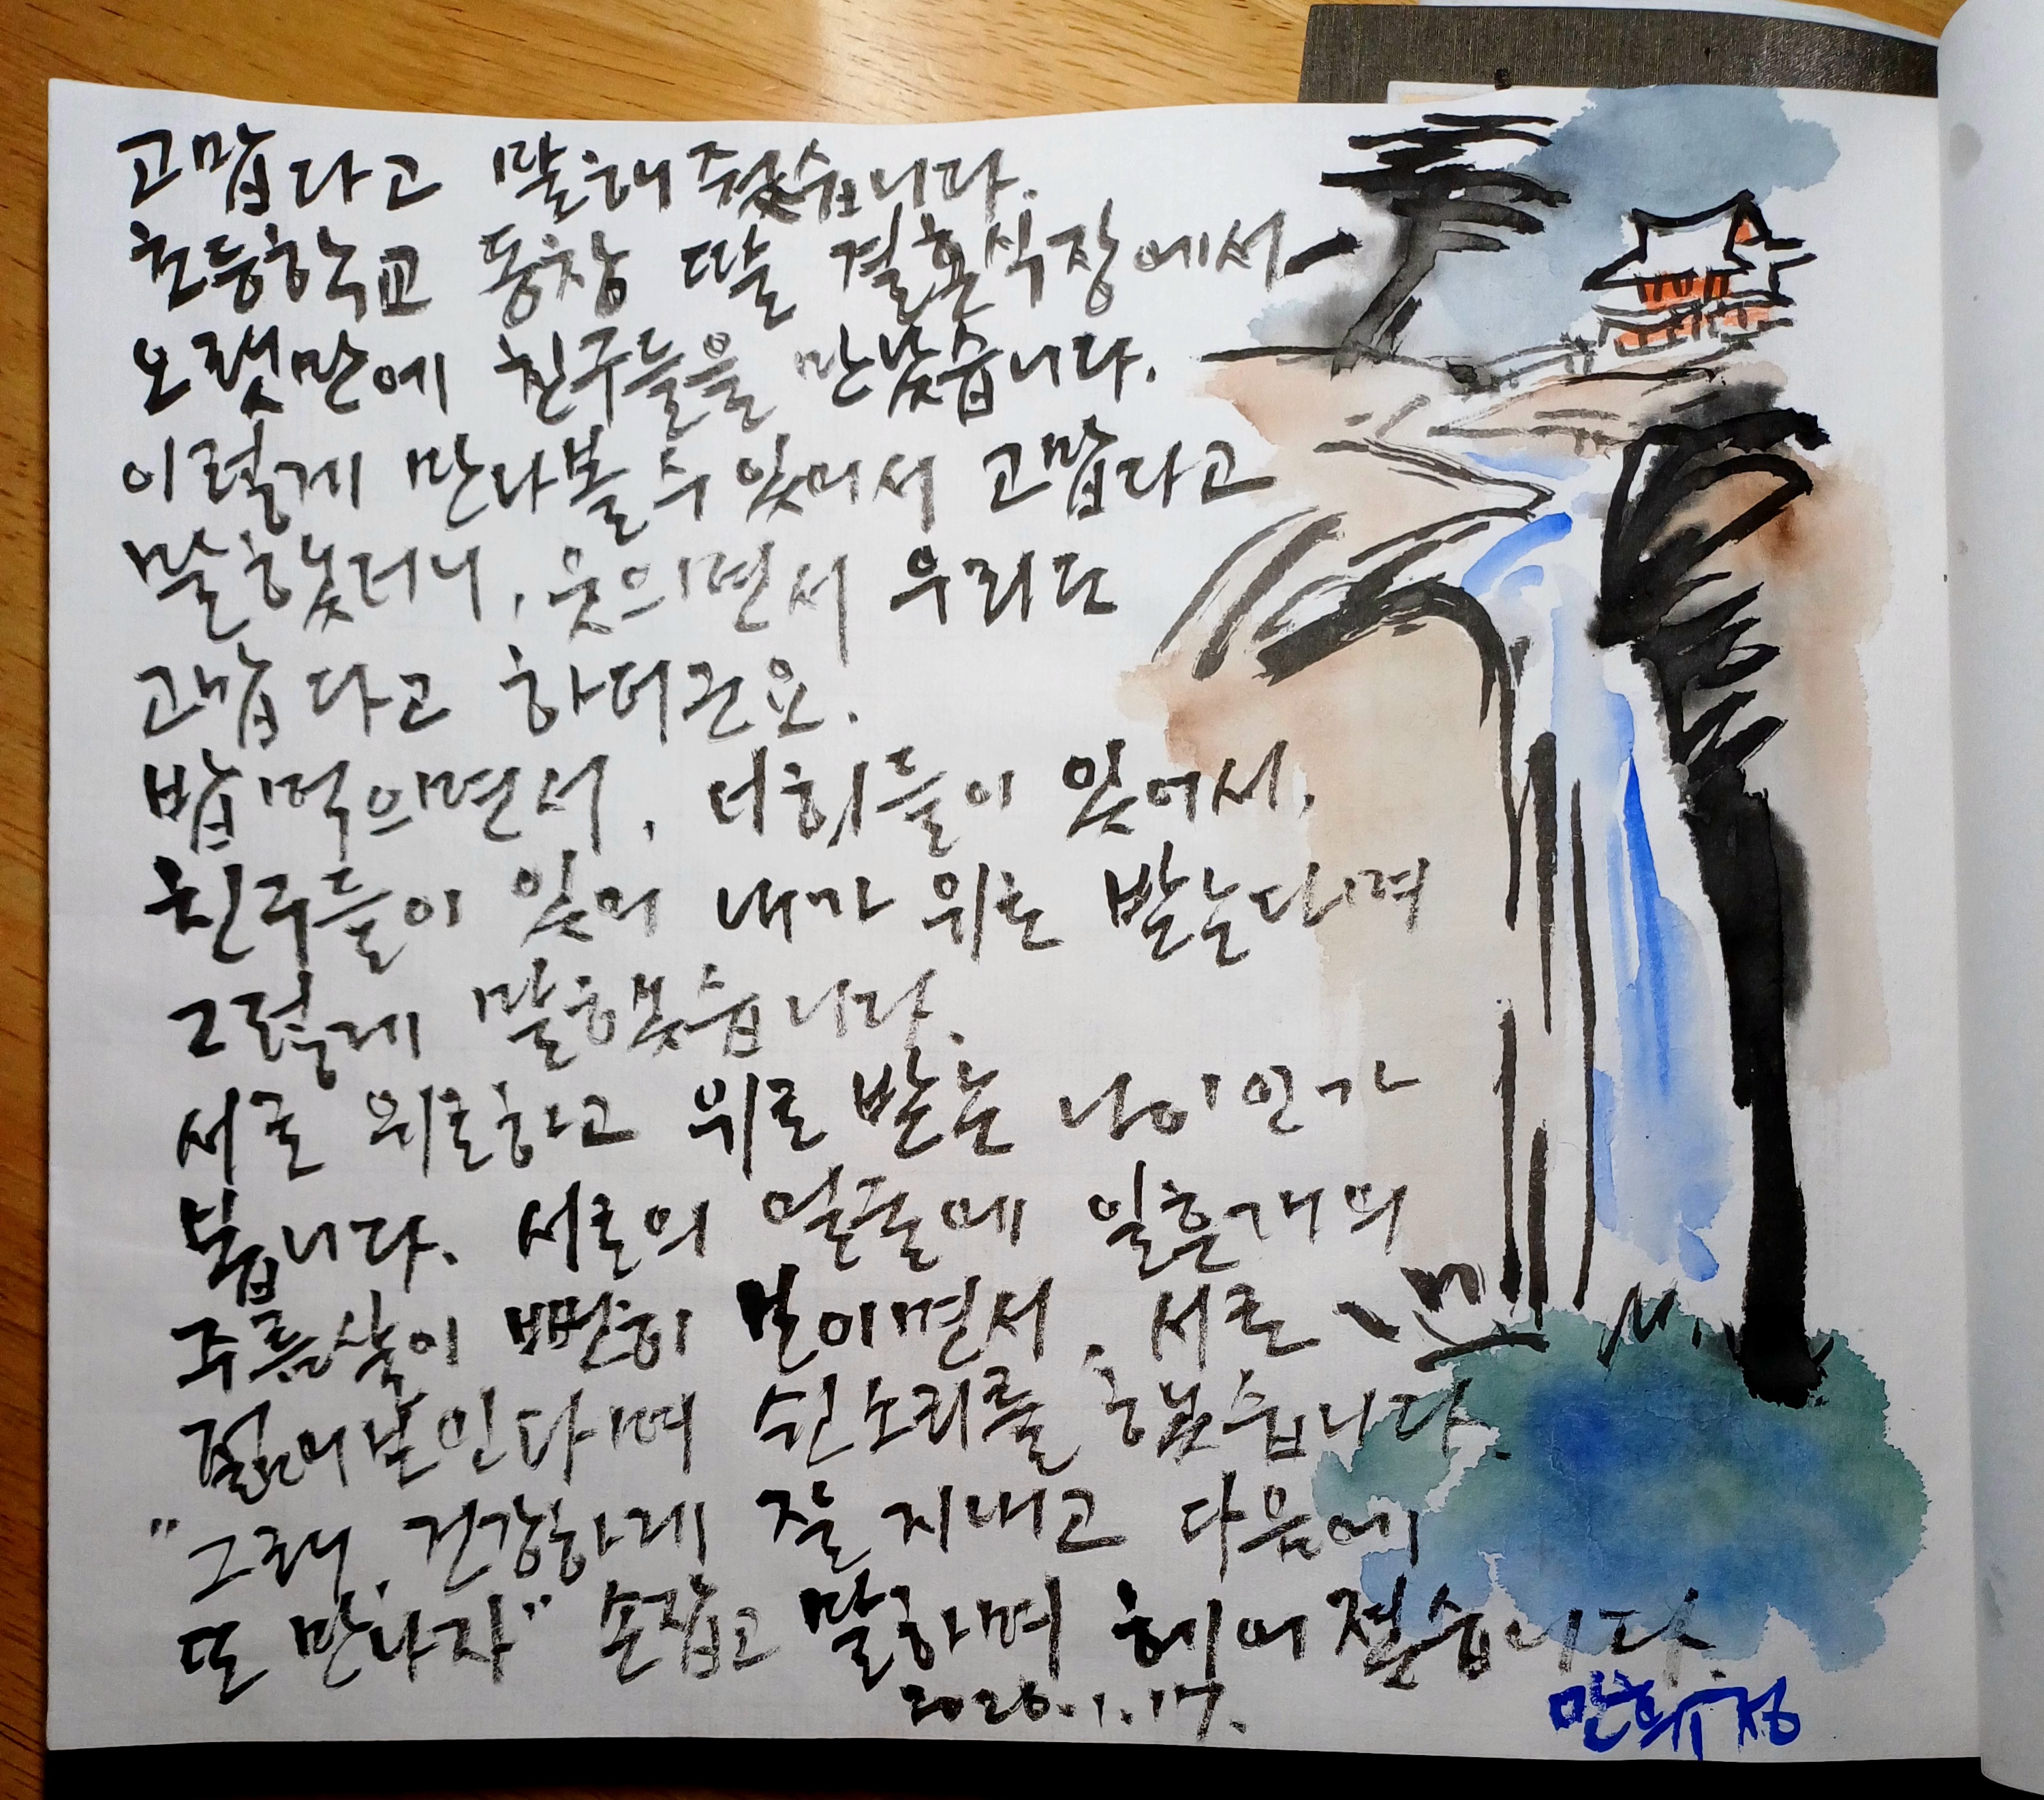 고맙다고 말해 주었습니다.
초등학교 동창 딸 결혼식장에서
오랫만에 친구들을 만났습니다.
이렇게 만나볼 수 있어서 고맙다고
말했더니, 웃으면서 우리도
고맙다고 하더군요.
밥먹으면서, 너희들이 있어서,
친구들이 있어 내가 위로 받는다며
그렇게 말했습니다.
서로 위로하고 위로 받는 나이인가
봅니다. 서로의 얼굴에 일흔개의
주름살이 뻔히 보이면서, 서로
젊어보인다며 쉰소리를 했습니다.
"그래, 건강하게 잘 지내고 다음에
또 만나자" 손잡고 말하며 헤어졌습니다.
2026.1.17.